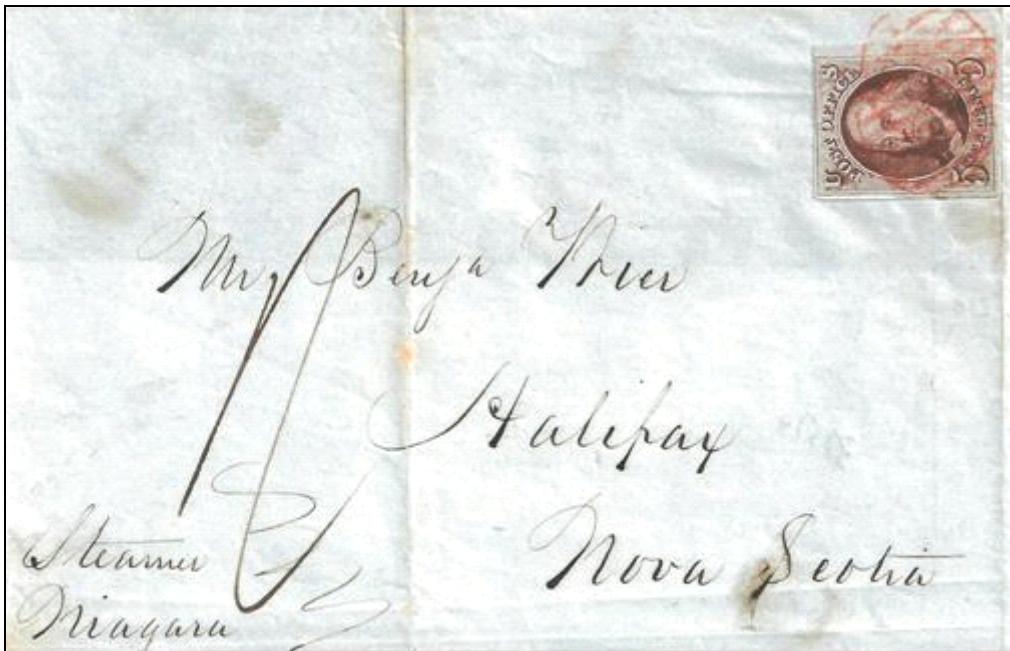 POST OFFICE
U S
FIVE CENTS
5 5
Mr Benja Wier
Halifax
Nova Scotia
Steamer
Niagara